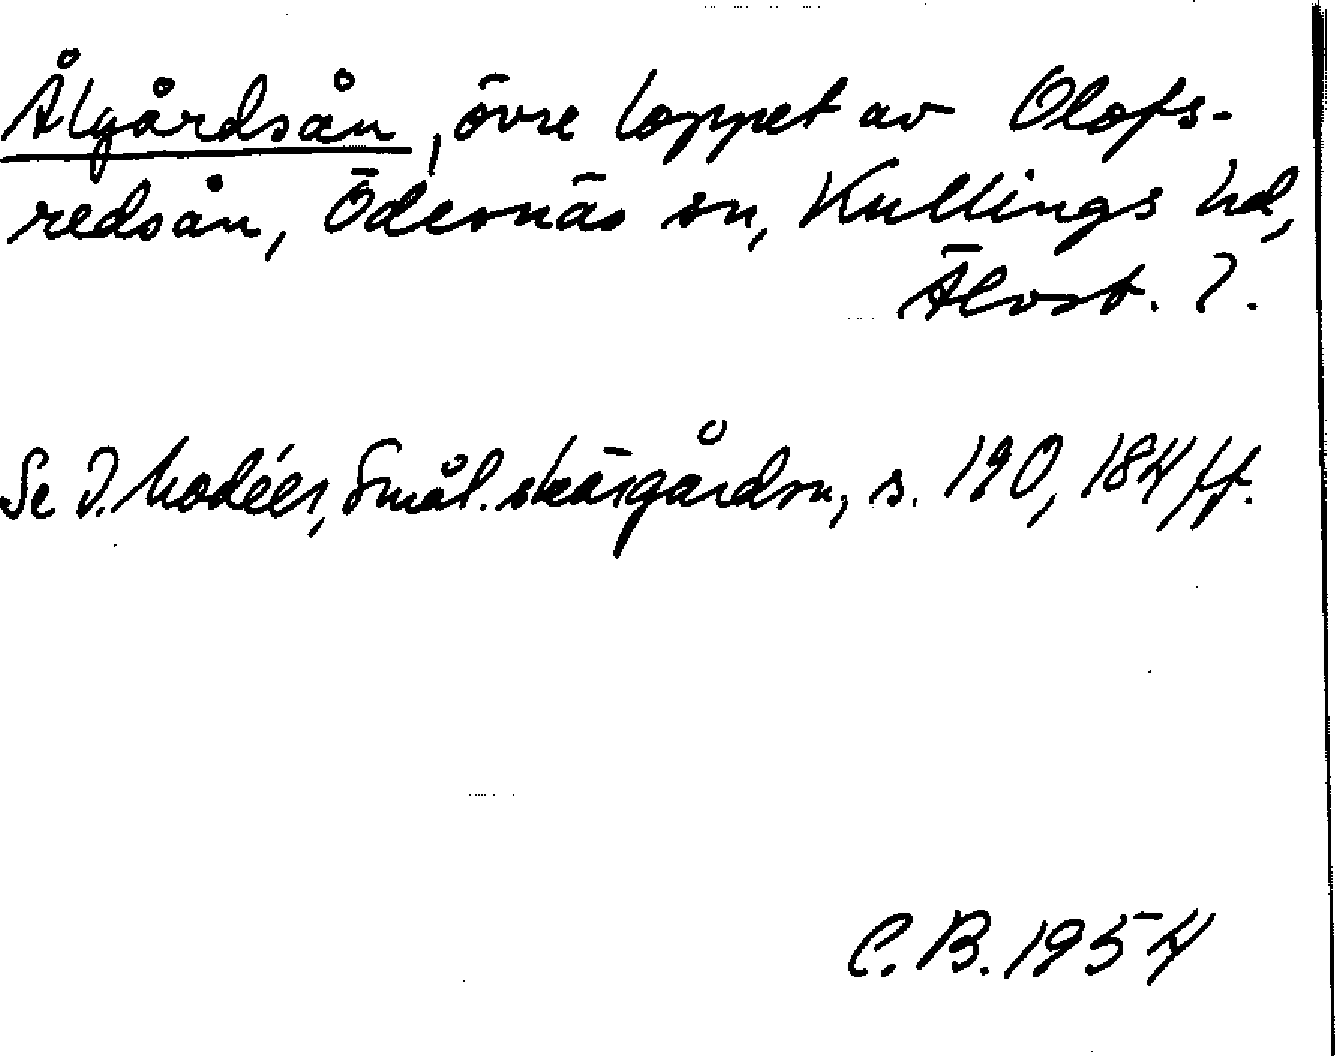 Ålgårdsån, övre loppet av Olofs-
redsån, Ödenäs sn, Kullings hd,
Älvsb. l.
Se I. Modéer, Smål. skärgårdsn, s. 190, 184 ff.
C. B. 1954